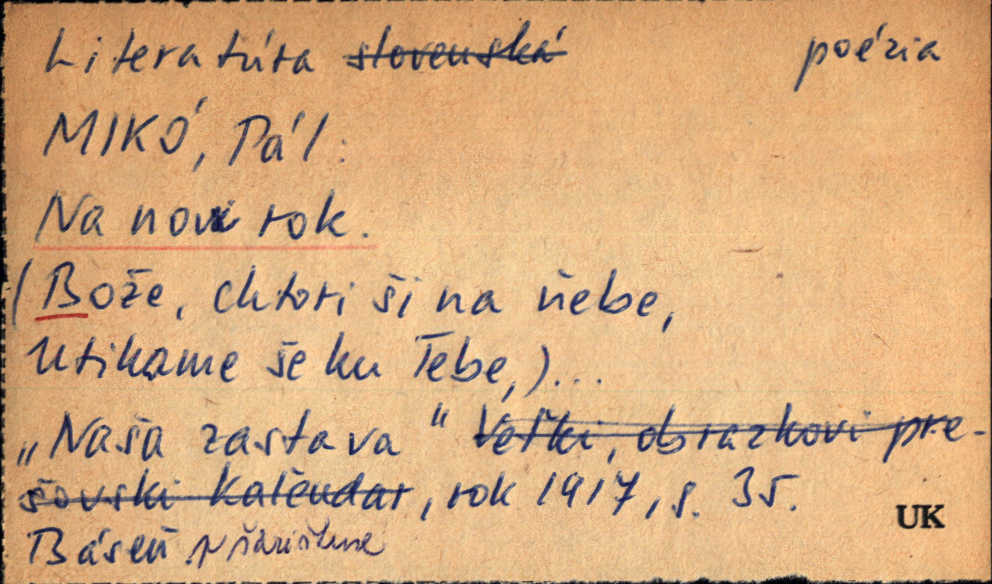 Literatúra slovenská poézia
MIKÓ, Pál:
Na novi rok.
(Bože, chtori ši na ňebe,
Utikame še ku Tebe,)...
„Naša zastava“ Veľki, obrazkovi pre-
šovski kaľendar, rok 1917, s. 35.
UK
Báseň v šarištine